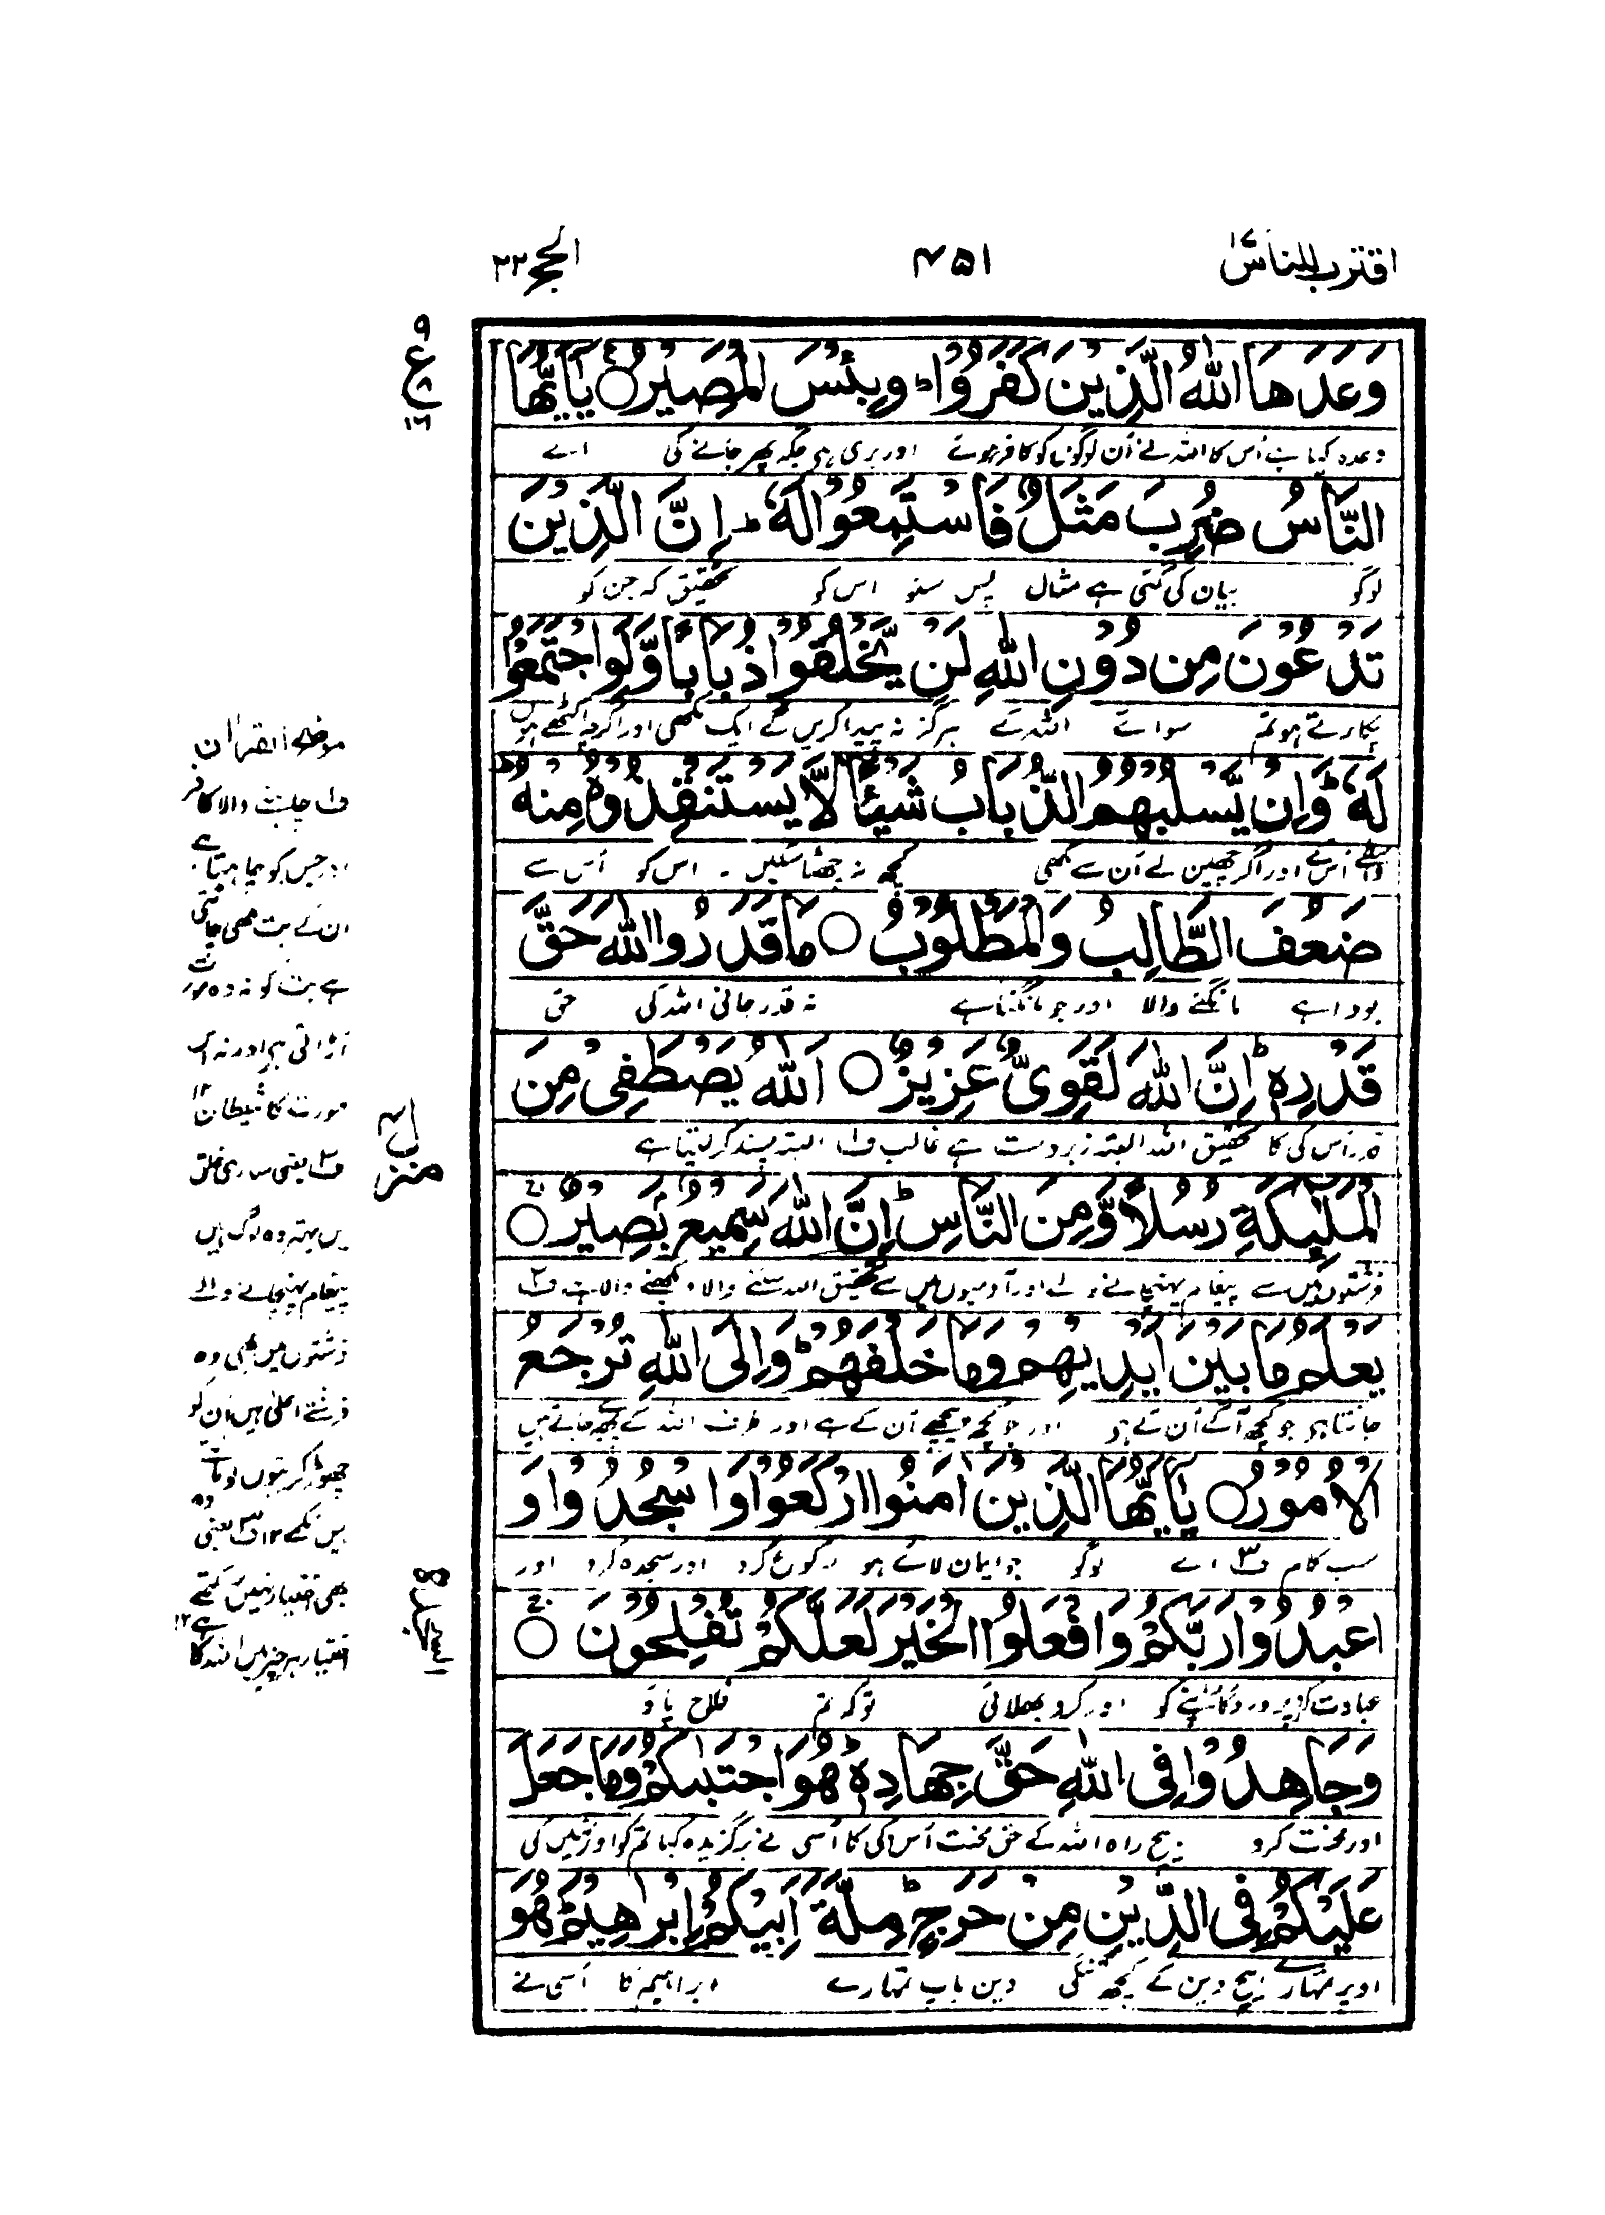 اقترب للناس ١٧
٤٥١
الحج ٢٢
وَعَدَهَا اللّٰهُ الَّذِيْنَ كَفَرُوْا ؕ وَبِئْسَ الْمَصِيْرُ ۝ يٰۤاَيُّهَا
وعدہ کیا ہے اُس کا اللہ نے اُن لوگوں کو کافر ہوئے اور بری ہے جگہ پھر جانے کی اے
النَّاسُ ضُرِبَ مَثَلٌ فَاسْتَمِعُوْا لَهٗ ؕ اِنَّ الَّذِيْنَ
لوگو بیان کی گئی ہے مثال پس سنو اس کو تحقیق کہ جن کو
تَدْعُوْنَ مِنْ دُوْنِ اللّٰهِ لَنْ يَّخْلُقُوْا ذُبَابًا وَّلَوِ اجْتَمَعُوْا
پکارتے ہو تم سوائے اللہ کے ہرگز نہ پیدا کریں گے ایک مکھی اور اگرچہ اکٹھے ہوں
لَهٗ ؕ وَاِنْ يَّسْلُبْهُمُ الذُّبَابُ شَيْئًا لَّا يَسْتَنْقِذُوْهُ مِنْهُ ؕ
واسطے اُس کے اور اگر چھین لے اُن سے مکھی کچھ نہ چھٹا سکیں اس کو اُس سے
ضَعُفَ الطَّالِبُ وَالْمَطْلُوْبُ ۝ مَا قَدَرُوا اللّٰهَ حَقَّ
بودا ہے مانگنے والا اور جو مانگتا ہے نہ قدر جانی اللہ کی حق
قَدْرِهٖ ؕ اِنَّ اللّٰهَ لَقَوِىٌّ عَزِيْزٌ ۝ اَللّٰهُ يَصْطَفِىْ مِنَ
قدر اس کی کا تحقیق اللہ البتہ زبردست ہے غالب ف۱ البتہ پسند کر لیتا ہے
الْمَلٰٓئِكَةِ رُسُلًا وَّمِنَ النَّاسِ ؕ اِنَّ اللّٰهَ سَمِيْعٌۢ بَصِيْرٌ ۝
فرشتوں میں سے پیغام پہنچانے والے اور آدمیوں میں سے تحقیق اللہ سننے والا دیکھنے والا ہے ف۲
يَعْلَمُ مَا بَيْنَ اَيْدِيْهِمْ وَمَا خَلْفَهُمْ ؕ وَاِلَى اللّٰهِ تُرْجَعُ
جانتا ہے جو کچھ آگے اُن کے ہے اور جو کچھ پیچھے اُن کے ہے اور طرف اللہ کے پھیرے جاتے ہیں
الْاُمُوْرُ ۝ يٰۤاَيُّهَا الَّذِيْنَ اٰمَنُوا ارْكَعُوْا وَاسْجُدُوْا وَ
سب کام ف۳ اے لوگو جو ایمان لائے ہو رکوع کرو اور سجدہ کرو اور
اعْبُدُوْا رَبَّكُمْ وَافْعَلُوا الْخَيْرَ لَعَلَّكُمْ تُفْلِحُوْنَ ۝
عبادت کرو پروردگار اپنے کو اور کرو بھلائی تو کہ تم فلاح پاؤ
وَجَاهِدُوْا فِى اللّٰهِ حَقَّ جِهَادِهٖ ؕ هُوَ اجْتَبٰىكُمْ وَمَا جَعَلَ
اور محنت کرو بیچ راہ اللہ کے حق محنت اُس کی کا اُسی نے برگزیدہ کیا تم کو اور نہیں کی
عَلَيْكُمْ فِى الدِّيْنِ مِنْ حَرَجٍ ؕ مِلَّةَ اَبِيْكُمْ اِبْرٰهِيْمَ ؕ هُوَ
اوپر تمہارے بیچ دین کے کچھ تنگی دین باپ تمہارے ابراہیم کا اُسی نے
٩
ع
٨
١٦
موضح القرآن
ف۱ چاہنے والا کافر
اور جس کو چاہتا ہے
ان کے بت مکھی چاٹتی
ہے بت کو نہ وہ مورت
اڑاتی ہے اور نہ اس
مورت کا شیطان ١٢
ف۲ یعنی ساری خلق
میں بہتر وہ لوگ ہیں
پیغام پہنچانے والے
فرشتوں میں بھی وہ
فرشتے اعلیٰ ہیں ان کو
چھوڑ کر بتوں کو مانتے
ہیں نکمے ١٢ ف۳ یعنی وہ
بھی اختیار نہیں رکھتے
اختیار ہر چیز میں اللہ کا ہے ١٢
منزل ٤